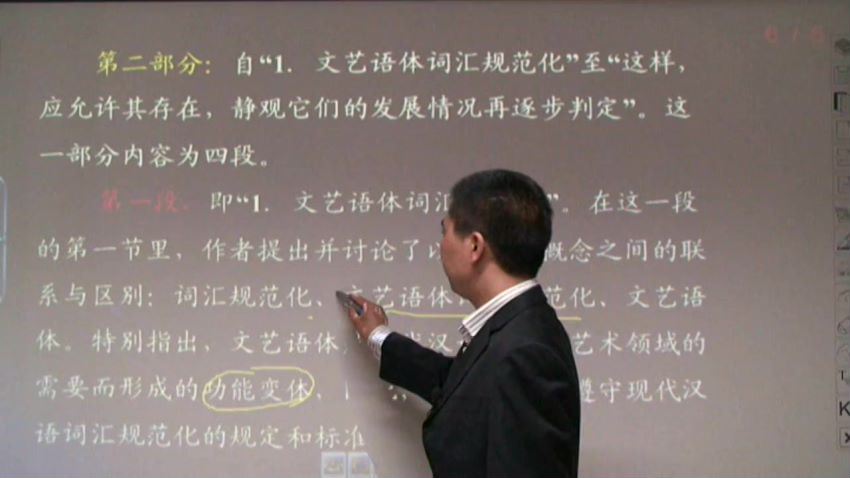 6/6
第二部分：自“1．文艺语体词汇规范化”至“这样，
应允许其存在，静观它们的发展情况再逐步判定”。这
一部分内容为四段。
第一段．即“1．文艺语体词汇”。在这一段
的第一节里，作者提出并讨论了以概念之间的联
系与区别：词汇规范化、文艺语体范化、文艺语
体。特别指出、文艺语体汉艺术领域的
需要而形成的功能变体、遵守现代汉
语词汇规范化的规定和标准
T
K